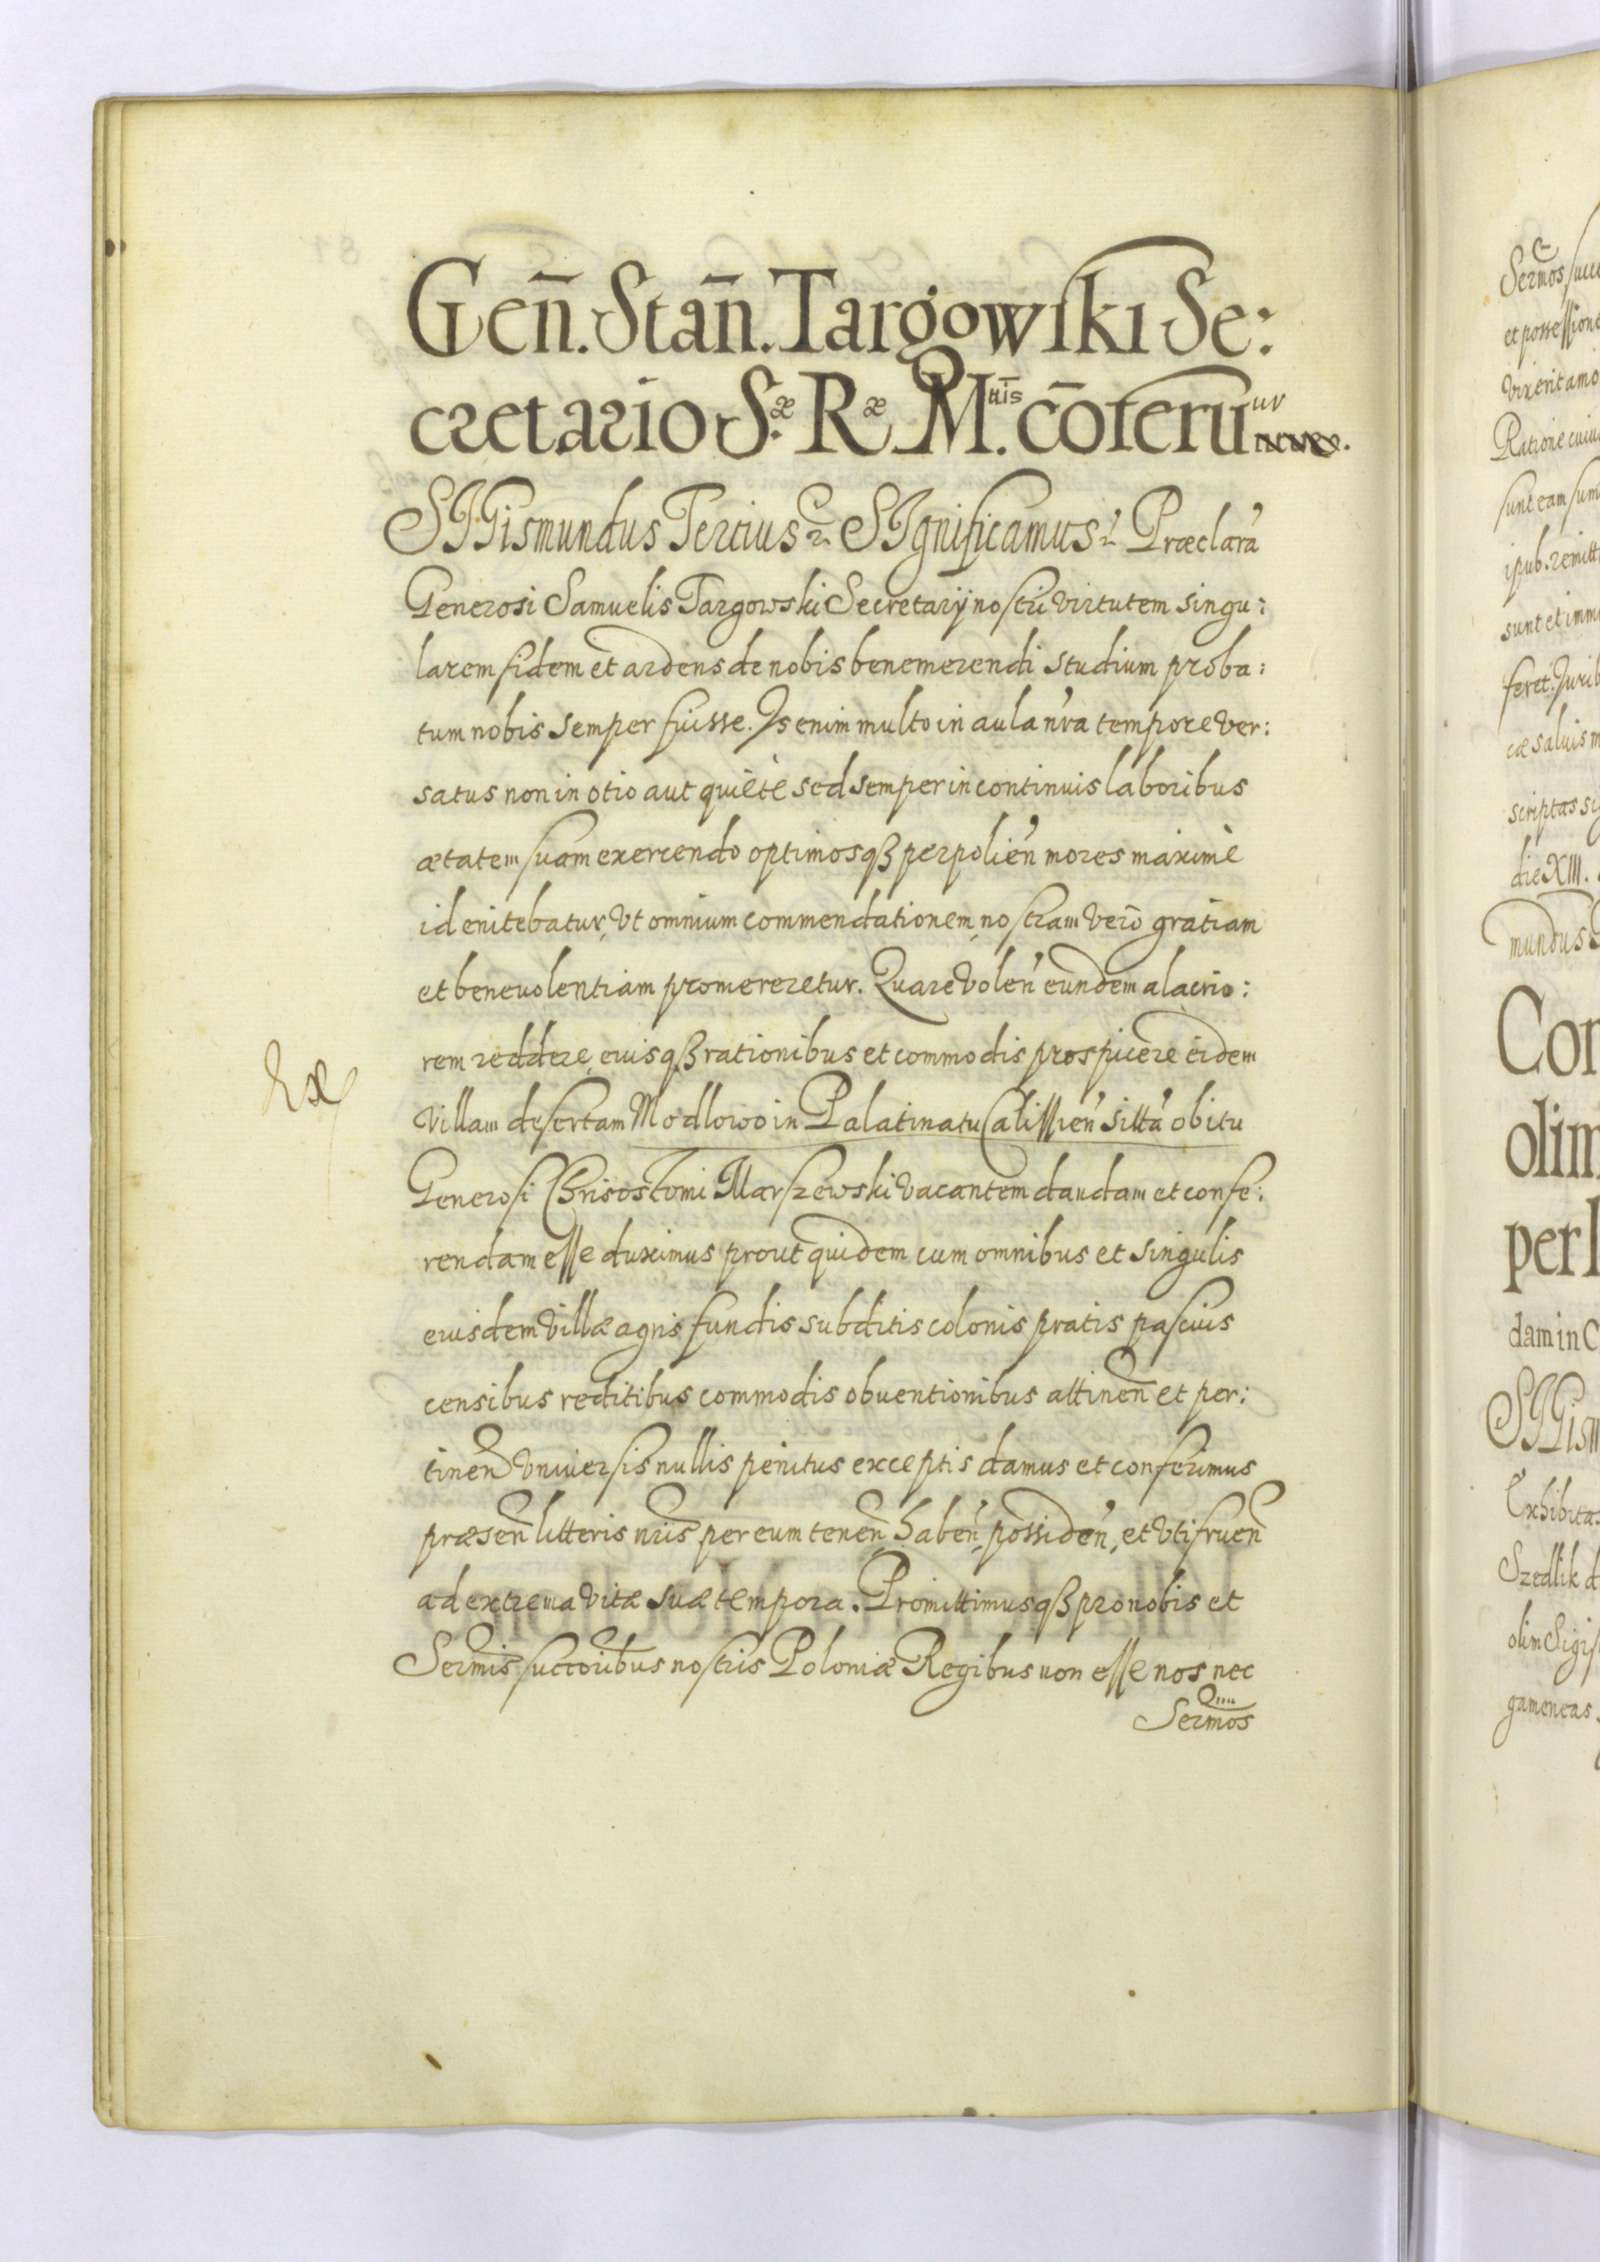 Gen̄. Stan̄. Targowſki Se:
cretario S.æ Ræ M.ttis cōferūur
SIGismundus Tertius &c. SIgnificamus &c. Præclara'
Generosi Samuelis Targowski Secretarij nostri virtutem singu:
larem fidem et ardens de nobis benemerendi studium proba:
tum nobis semper fuisse. Is enim multo in aula n'ra tempore ver:
satus non in otio aut quiete sed semper in continuis laboribus
ætatem suam exercendo optimosqꝫ perpolien' mores maximè
id enitebatur, Vt omnium commendationem, nostram verò gratiam
et benevolentiam promereretur. Quare volen' eundem alacrio:
rem reddere, eiusqꝫ rationibus et commodis prospicere eidem
Villam desertam Modlowo in Palatinatu Calissien' sitta' obitu
Generosi Chrisostomi Marszewski vacantem dandam et confe:
rendam esse duximus prout quidem cum omnibus et singulis
eiusdem villæ agris fundis subditis colonis pratis pascuis
censibus reditibus commodis obventionibus attinen̄ et per:
tinen̄ Vniversis nullis penitus exceptis damus et conferimus
præsen̄ litteris nr̄is per eum tenen̄, haben', possiden', et Vtifruen̄
ad extrema vitæ suæ tempora. Promittimusqꝫ pro nobis et
Serm̄is succorib̄us nostris Poloniæ Regibus non esse nos nec
Serm̄os
Sermo̅s succe
et possessione
vixerit amo
Ratione cuius
sunt eam sum
ipub. remitt
sunt et imm
feret. Jurib
cæ saluis m
scriptas si
die XIII.
mundus
Con
olim
per I
dam in C
SIGism
Exhibitas
Szedlik d
olim Sigis
gameneas